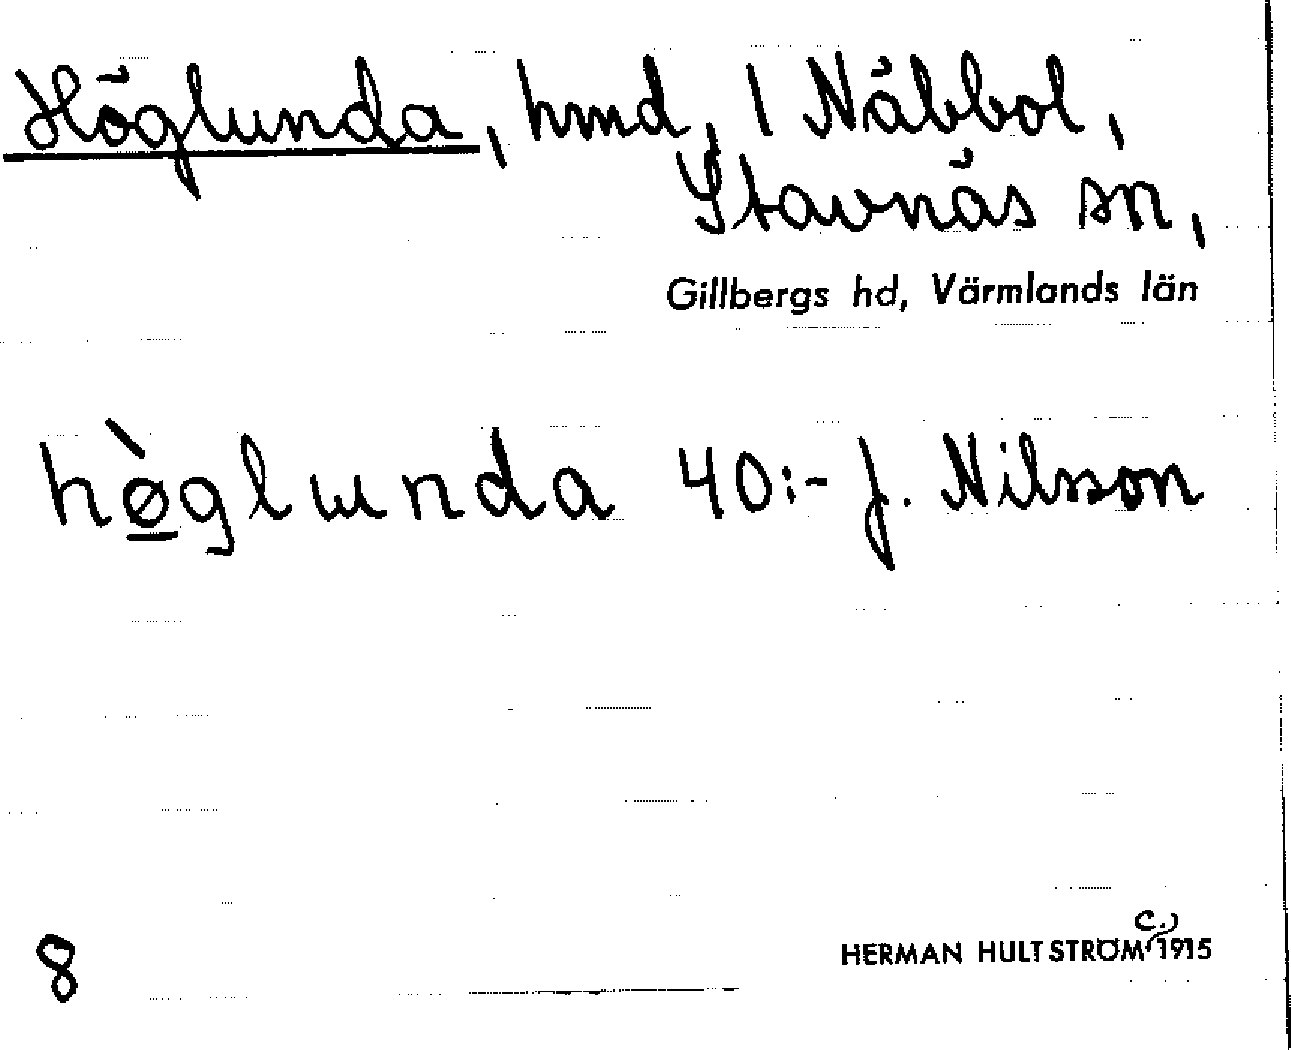 Höglunda, hmd, 1 Näbbol,
Stavnäs sn,
Gillbergs hd, Värmlands län
hø̀glunda 40:- J. Nilsson
8
HERMAN HULTSTRÖM (c.) 1915